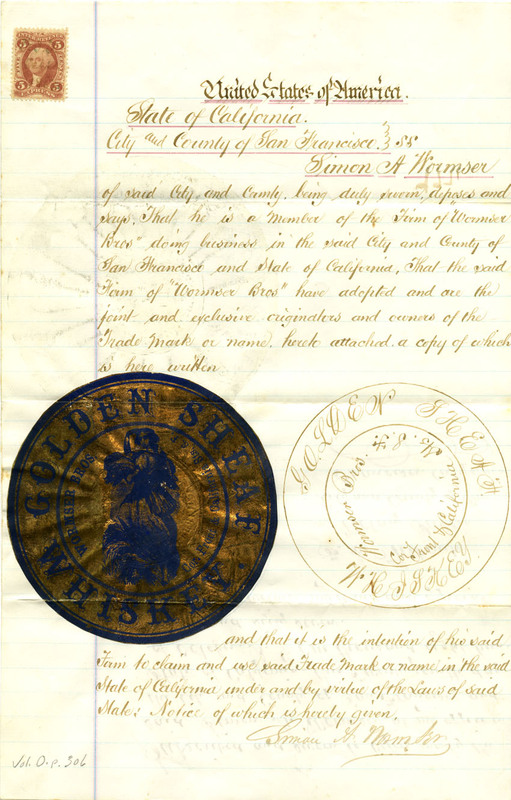 5 5
United States of America.
State of California.
City and County of San Francisco. } SS
Simon A Wormser
of said City and County, being duly sworn, deposes and
says, That he is a Member of the Firm of "Wormser
Bros" doing business in the said City and County of
San Francisco and State of California, That the said
Firm of "Wormser Bros" have adopted and are the
joint and exclusive originators and owners of the
Trade Mark or name, hereto attached, a copy of which
is here written
GOLDEN SHEAF
WHISKEY
WORMSER BROS
GOLDEN SHEAF
WHISKEY
Wormser Bros.
Cor Front & California Sts. S. F.
and that it is the intention of his said
Firm to claim and use said Trade Mark or name, in the said
State of California, under and by virtue of the Laws of said
State: Notice of which is hereby given.
Simon A. Wormser
Vol. O-p. 306